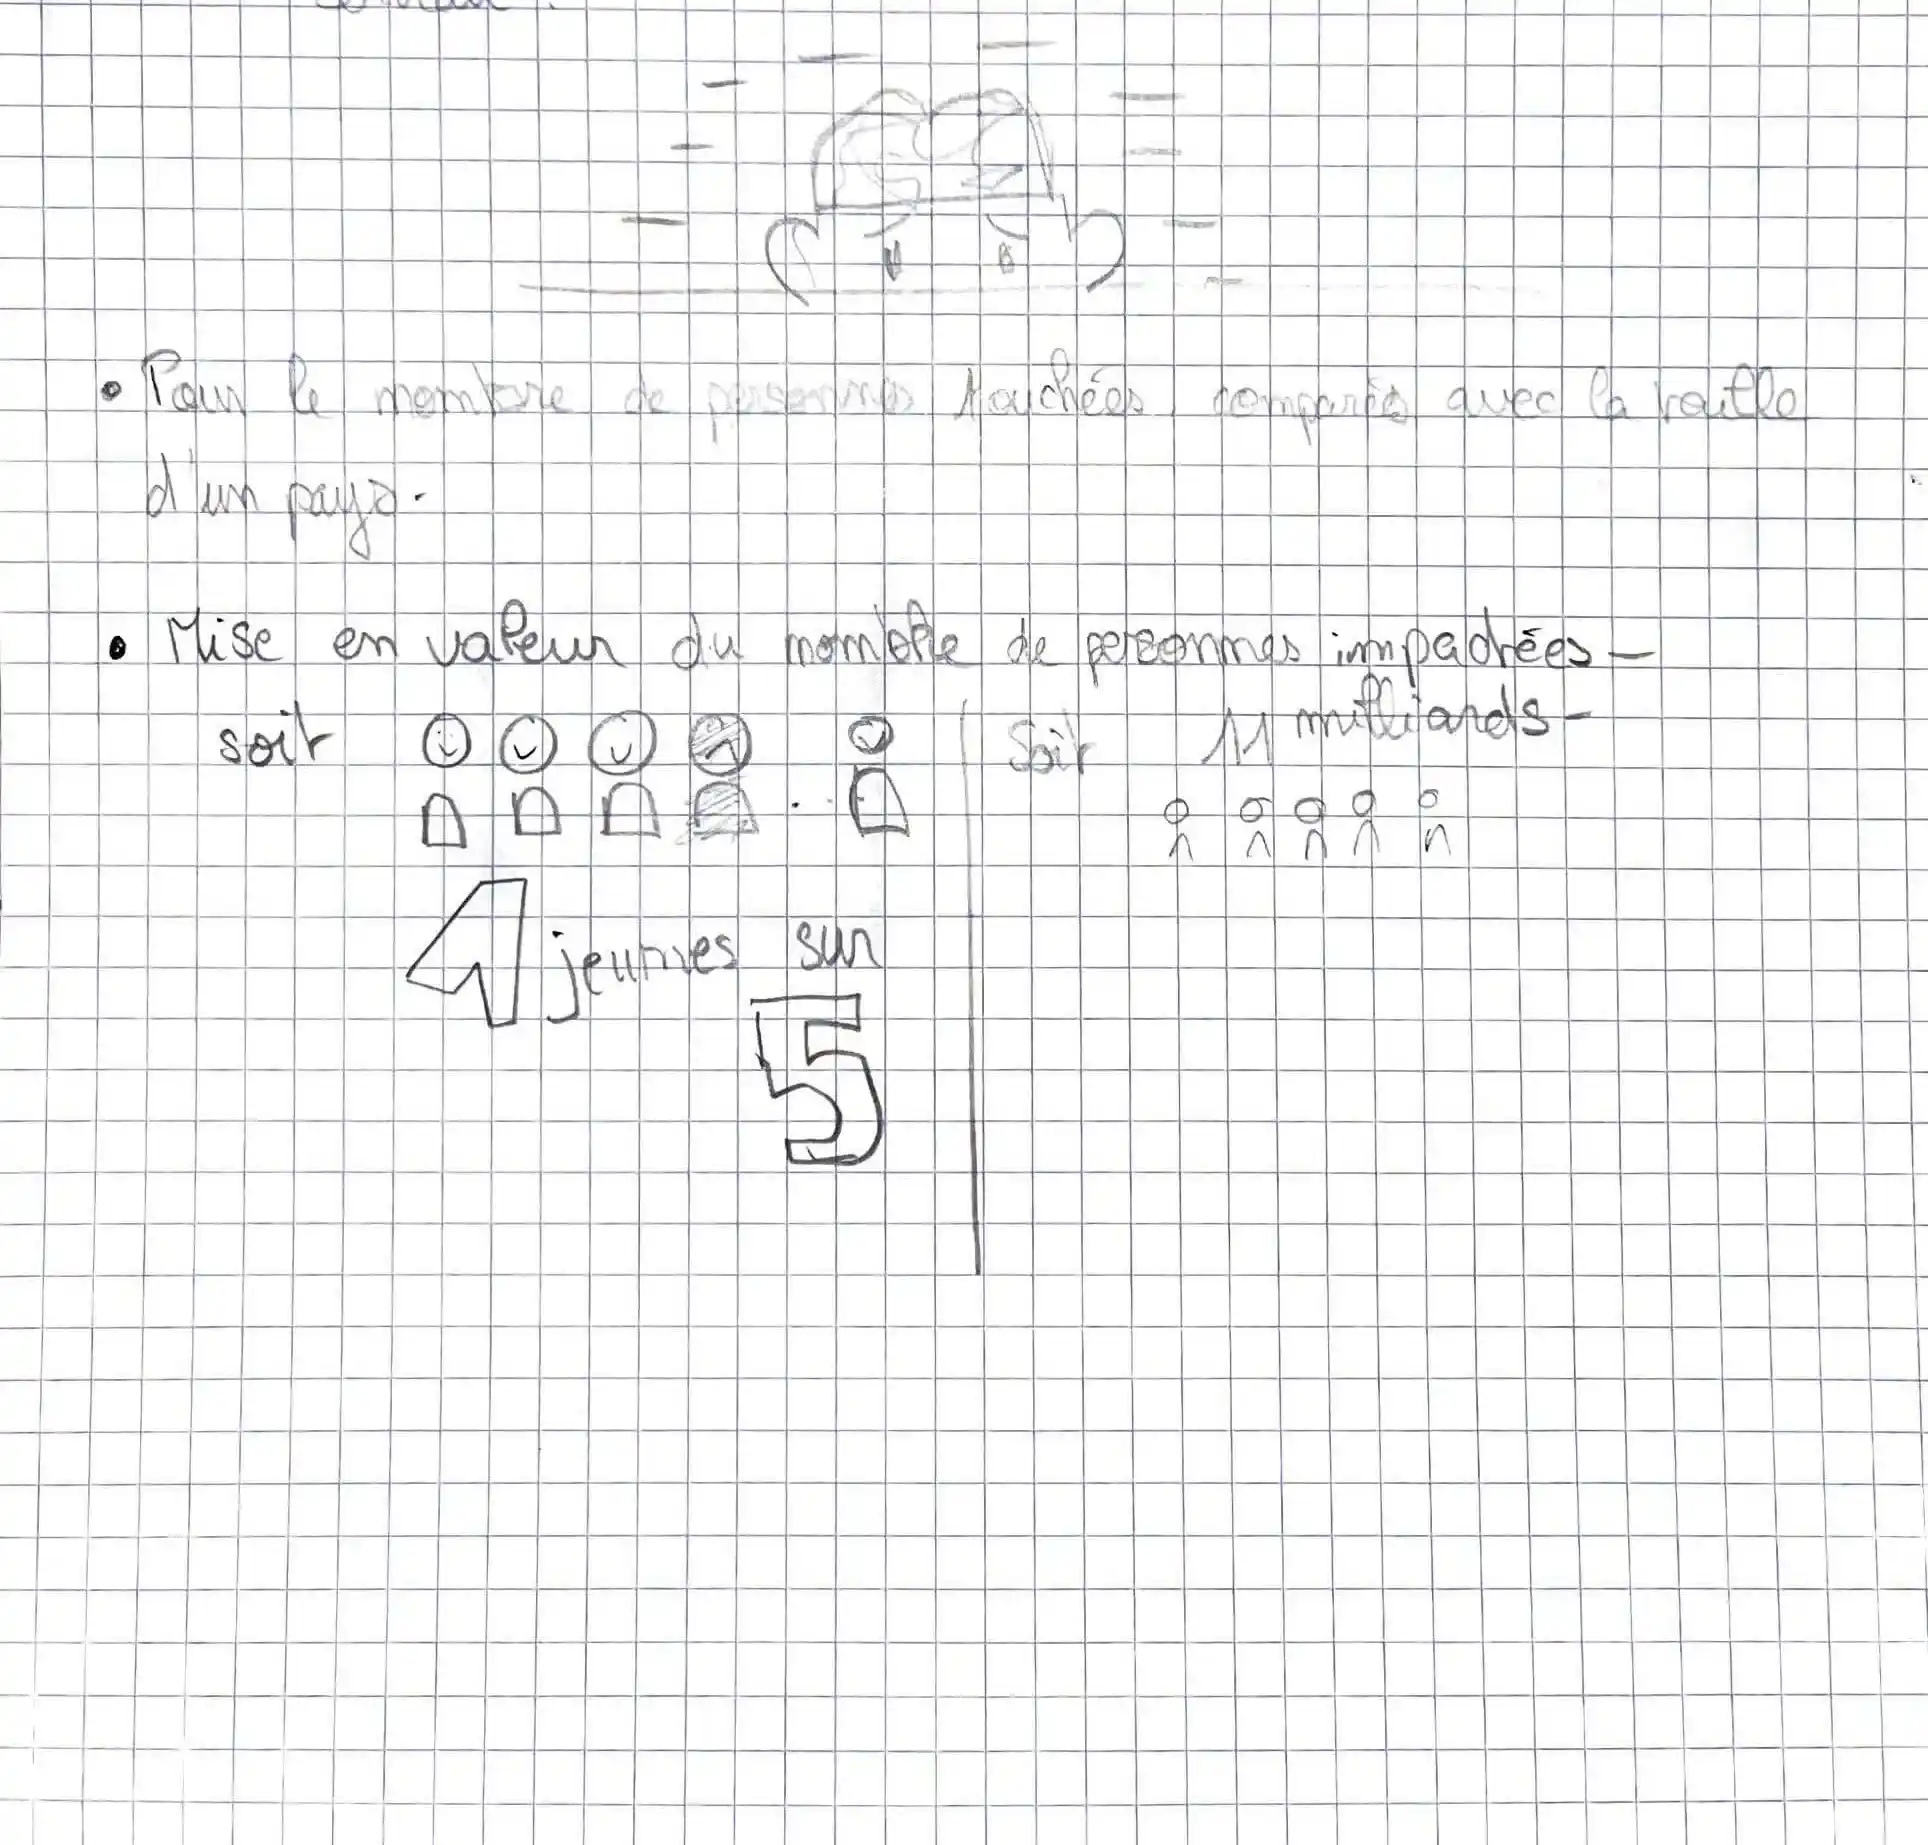 • Pour le nombre de personnes touchées, comparés avec la taille
d'un pays.
• Mise en valeur du nombre de personnes impactées -
soit
Soit 11 milliards -
4 jeunes sur
5